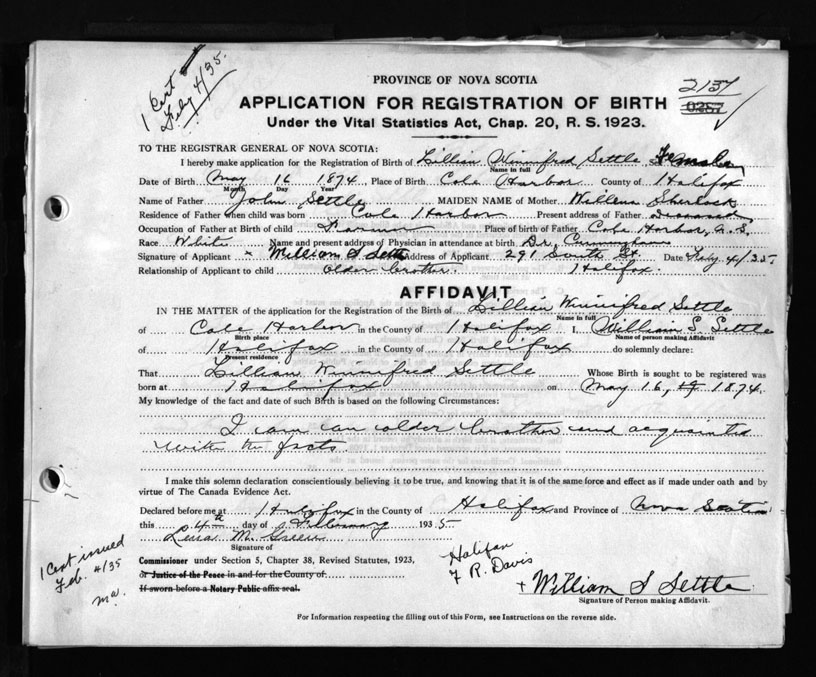 1 Cert
Feby 4/35.
PROVINCE OF NOVA SCOTIA
2137
0287
APPLICATION FOR REGISTRATION OF BIRTH
Under the Vital Statistics Act, Chap. 20, R. S. 1923.
TO THE REGISTRAR GENERAL OF NOVA SCOTIA:
I hereby make application for the Registration of Birth of Lillian Winnifred Settle Female
Name in full
Date of Birth May 16 1874 Place of Birth Cole Harbor County of Halifax
Month Day Year
Name of Father John Settle MAIDEN NAME of Mother Willena Sherlock
Residence of Father when child was born Cole Harbor Present address of Father Deceased
Occupation of Father at Birth of child Farmer Place of birth of Father Cole Harbor, N.S.
Race White Name and present address of Physician in attendance at birth Dr. Cunningham
Signature of Applicant × William S Settle Address of Applicant 291 South St. Date Feby 4/35.
Relationship of Applicant to child older brother. Halifax.
AFFIDAVIT
IN THE MATTER of the application for the Registration of the Birth of Lillian Winnifred Settle
Name in full
of Cole Harbor in the County of Halifax I, William S Settle
Birth place Name of person making Affidavit
of Halifax in the County of Halifax do solemnly declare:
Present residence
That Lillian Winnifred Settle Whose Birth is sought to be registered was
born at Halifax on May 16, 19 1874.
My knowledge of the fact and date of such Birth is based on the following Circumstances:
I am an older brother and acquainted
with the facts.
I make this solemn declaration conscientiously believing it to be true, and knowing that it is of the same force and effect as if made under oath and by
virtue of The Canada Evidence Act.
Declared before me at Halifax in the County of Halifax and Province of Nova Scotia
this 4th day of February 1935
M. Green
Signature of
1 Cert issued
Feb. 4/35
ma.
Commissioner under Section 5, Chapter 38, Revised Statutes, 1923,
or Justice of the Peace in and for the County of
If sworn before a Notary Public affix seal.
Halifax
F R. Davis
+ William S Settle
Signature of Person making Affidavit.
For Information respecting the filling out of this Form, see Instructions on the reverse side.